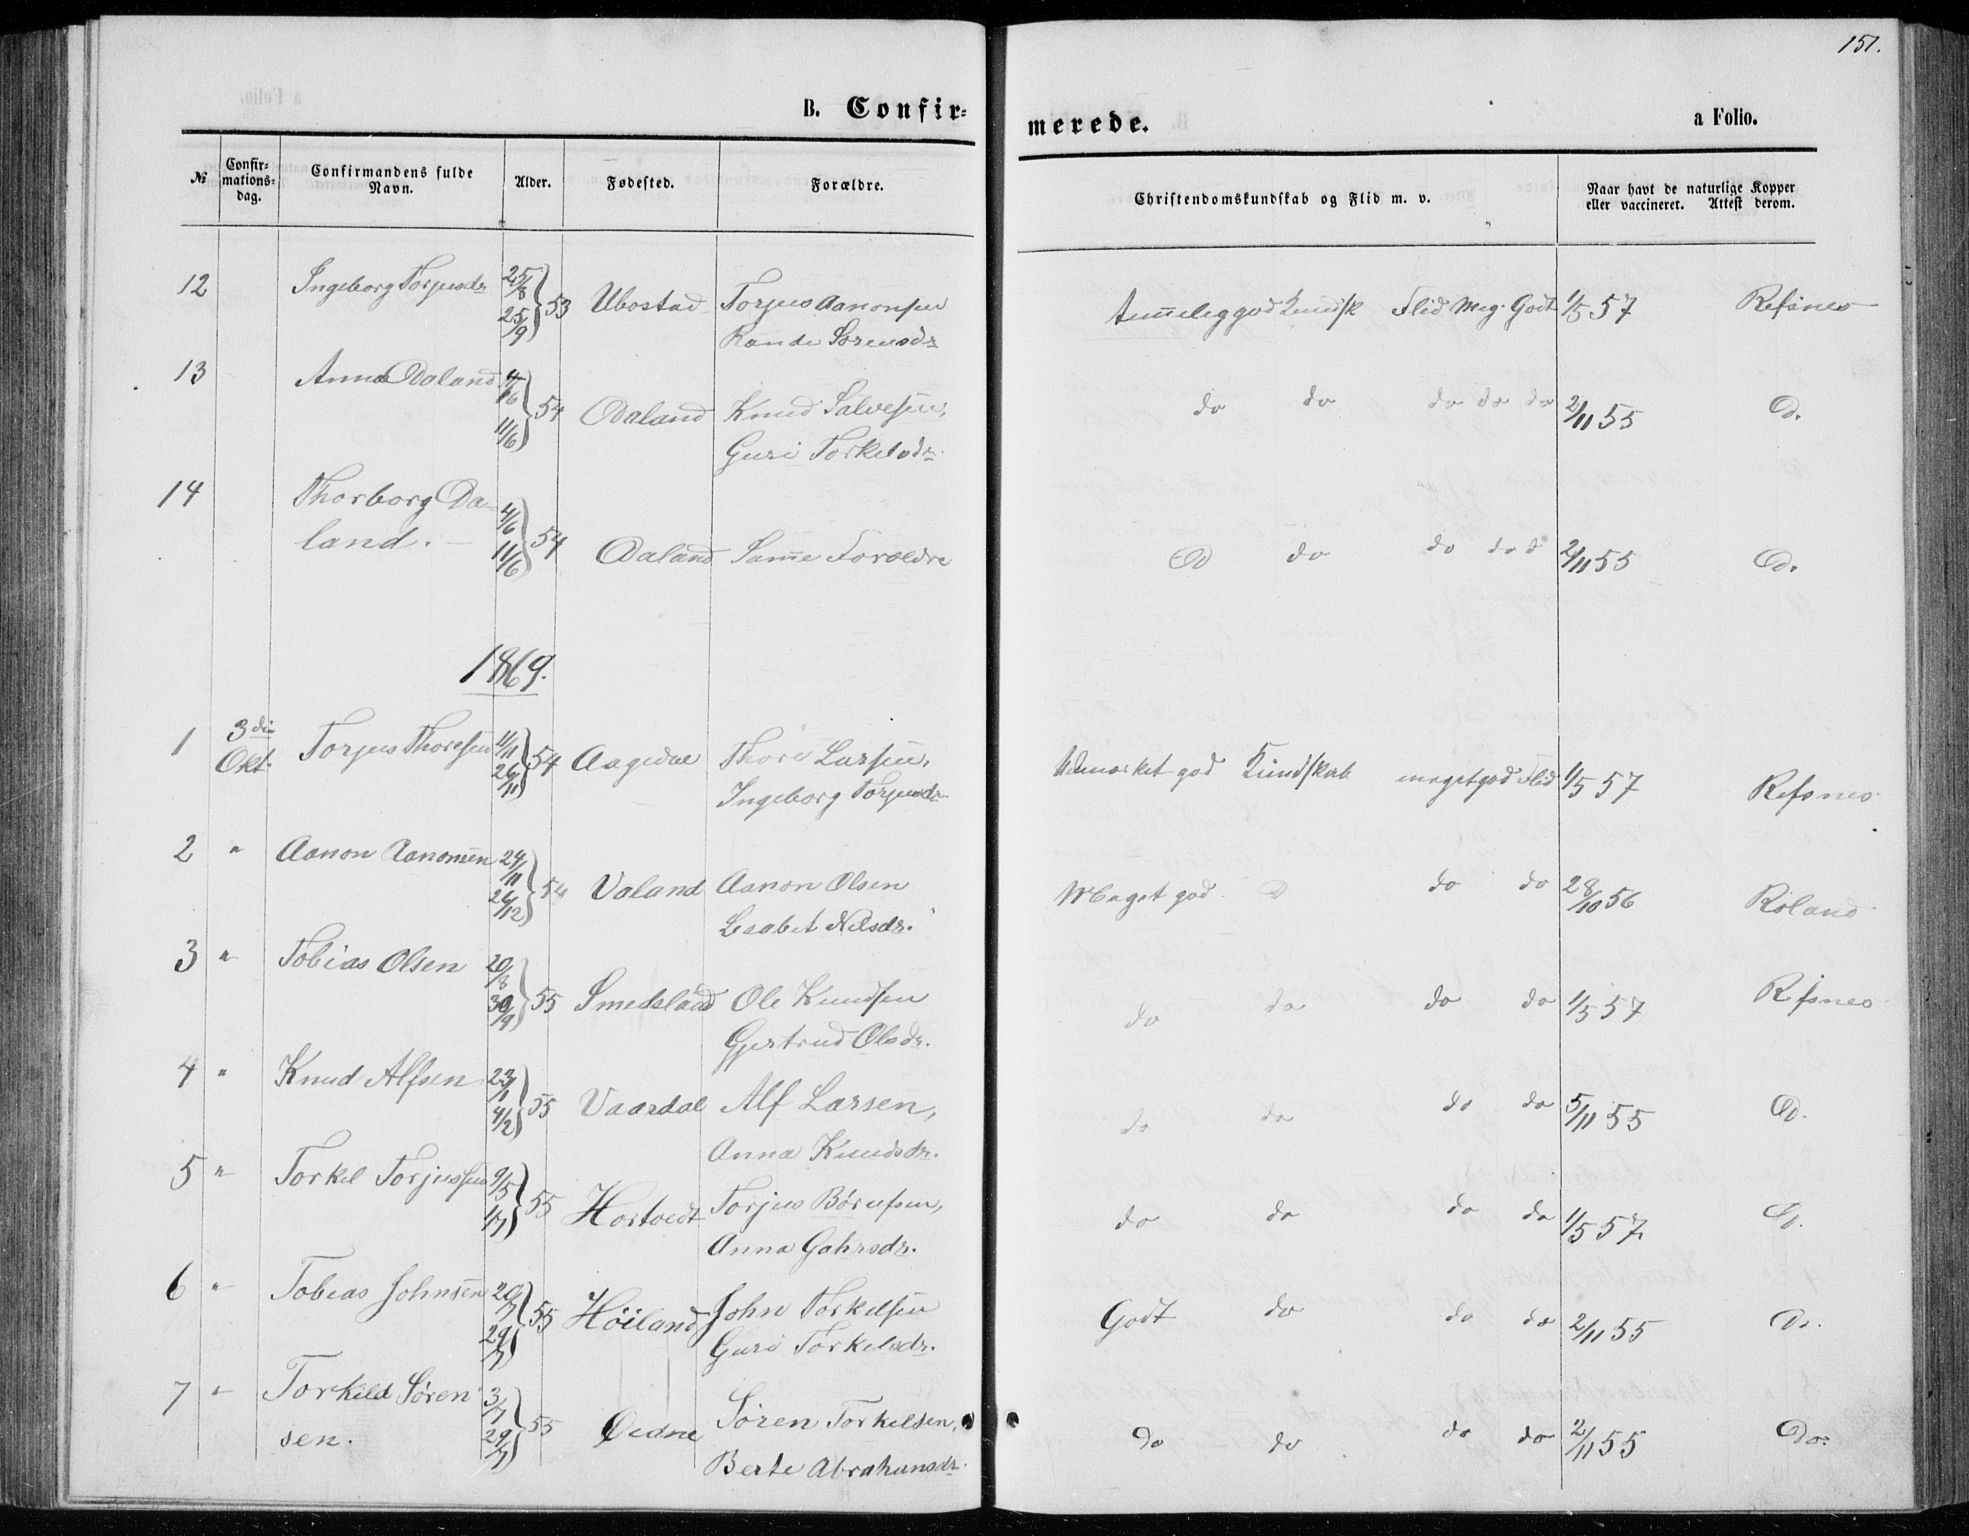 151.
B. Confir=
merede.
a Folio.
№
Confir=
mations=
dag.
Confirmandens fulde
Navn.
Alder.
Fødested.
Forældre.
Christendomskundskab og Flid m. v.
Naar havt de naturlige Kopper
eller vaccineret. Attest derom.
12 Ingeborg Torjusdr 25/8 25/9 } 53 Ubostad Torjus Aanonsen
Sørensdr
god Kundsk Flid Meg. Godt 1/5 57 Refsnes
13 Anna Daland 11/6 } 54 Daland Knud Salvesen,
Guri Torkelsdr.
do do do do do 2/11 55 D.
14 Thorborg Da-
land. 4/6 11/6 } 54 Daland Samme Forældre
D do do do d 2/11 55 D.
1869.
1 3die
Okt. Torjus Thoresen 11/11 26/11 } 54 Aagedal Thore Larsen,
Ingeborg Torjusdr.
Udmærket god Kundskab megetgod Flid 1/5 57 Refsnes
2 " Aanon Aanonsen 24/11 26/12 } 54 Valand Aanon Olsen
Nilsdr.
Meget god D do do 28/10 56 Røland
3 " Tobias Olsen 20/8 30/9 } 55 Smedsland Ole Knudsen
Gjertrud Olsdr.
do do do do 1/5 57 Refsnes
4 " Knud Alfsen 23/1 4/2 } 55 Vaardal Alf Larsen,
Anna Knudsdr.
do do do do 5/11 55 D.
5 " Torkel Torjussen 9/5 1/7 } 55 Hortvedt Torjus Børufsen,
Anna Gahrsdr.
do do do do 1/5 57. D.
6 " Tobias Johnsen 20/7 29/7 } 55 Høiland John Torkelsen
Guri Torkelsdr.
Godt do do do 2/11 55 Do.
7 " Torkild Søren
sen. 3/7 29/7 } 55 Øidne Søren Torkelsen,
Berte Abrahamsdr.
Do do do do 2/11 55 Do.